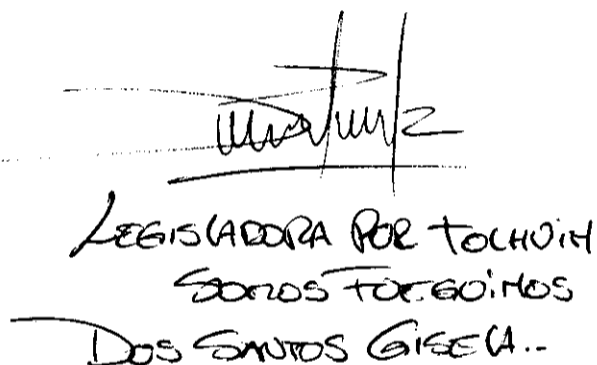 LEGISLADORA POR TOLHUIN
SOMOS FUEGUINOS
DOS SANTOS GISELA..